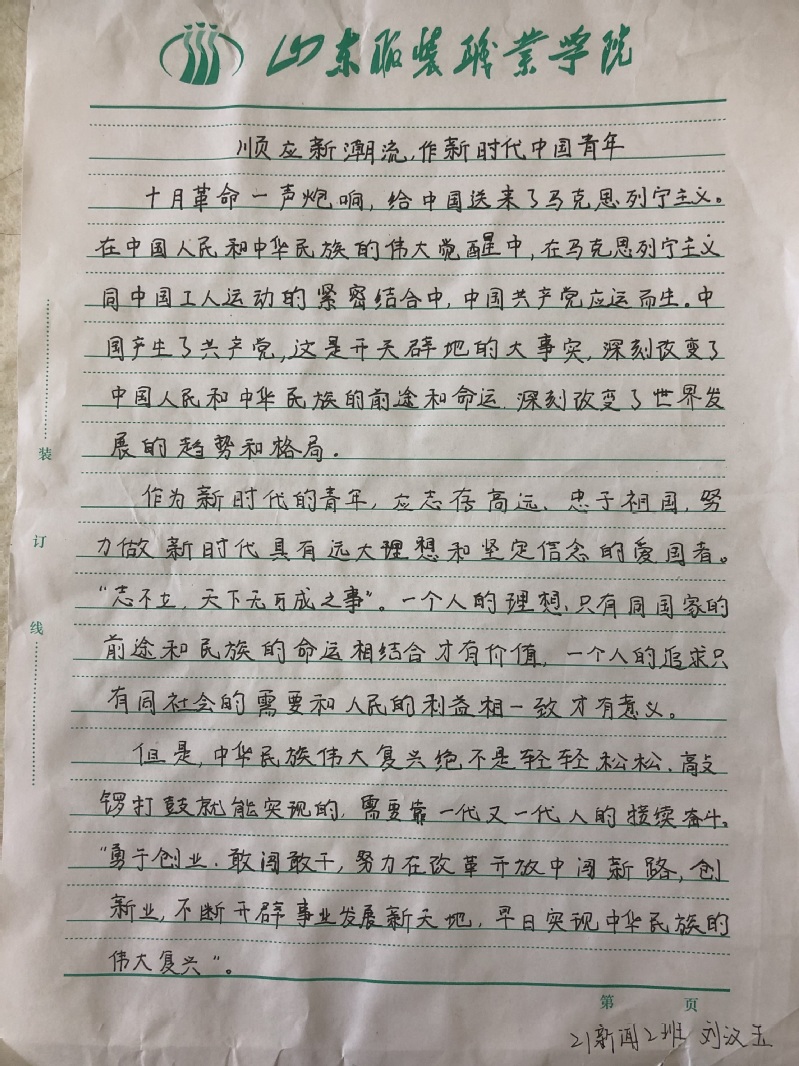 山东服装职业学院
顺应新潮流,作新时代中国青年
十月革命一声炮响，给中国送来了马克思列宁主义。
在中国人民和中华民族的伟大觉醒中,在马克思列宁主义
同中国工人运动的紧密结合中,中国共产党应运而生。中
国产生了共产党,这是开天辟地的大事实,深刻改变了
中国人民和中华民族的前途和命运,深刻改变了世界发
展的趋势和格局.
作为新时代的青年,应志存高远、忠于祖国,努
力做新时代具有远大理想和坚定信念的爱国者。
“志不立,天下无可成之事”。一个人的理想、只有同国家的
前途和民族的命运相结合才有价值,一个人的追求只
有同社会的需要和人民的利益相一致才有意义。
但是,中华民族伟大复兴绝不是轻轻松松、敲
锣打鼓就能实现的,需要靠一代又一代人的接续奋斗。
“勇于创业、敢闯敢干,努力在改革开放中闯新路,创
新业,不断开辟事业发展新天地,早日实现中华民族的
伟大复兴”。
装
订
线
第 页
21新闻2班 刘汉玉